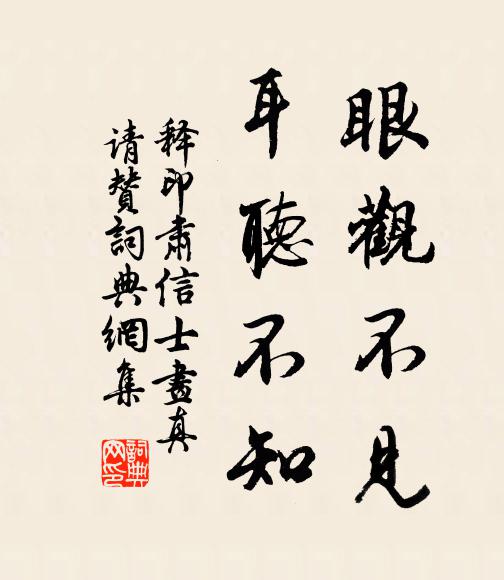 眼觀不見
耳聽不知
释印肃信士畫真
请贊詞典網集
詞典网印